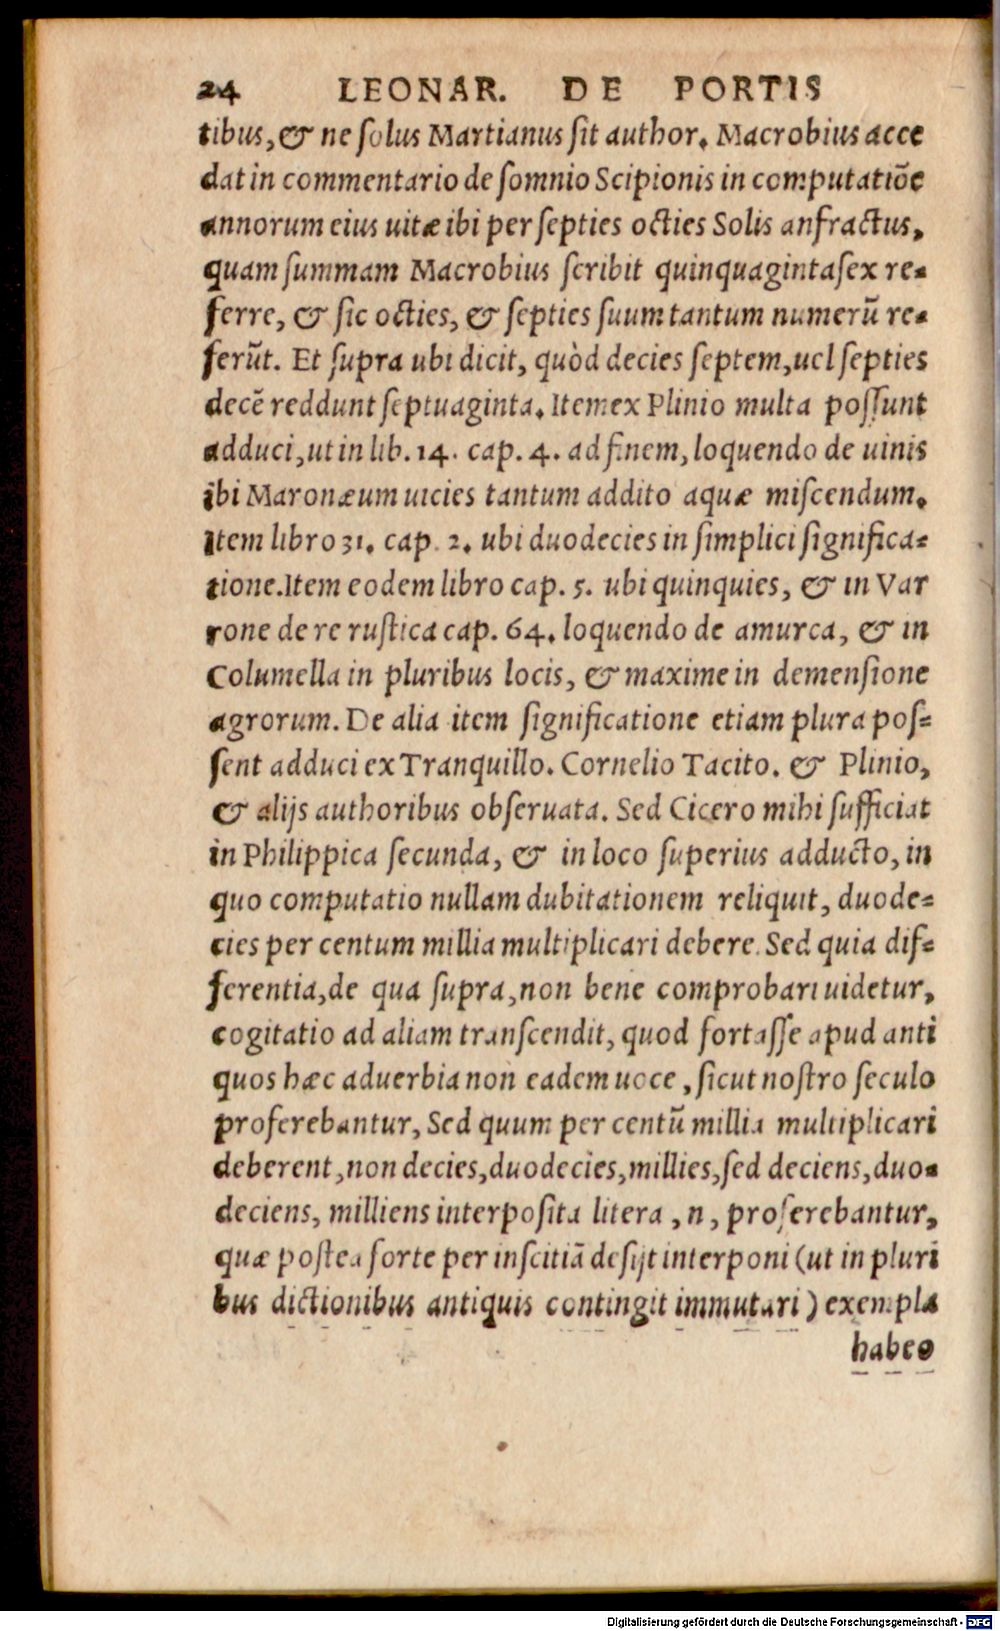 24 LEONAR. DE PORTIS
tibus, & ne solus Martianus sit author. Macrobius acce
dat in commentario de somnio Scipionis in computatiōe
annorum eius uitæ ibi per septies octies Solis anfractus,
quam summam Macrobius scribit quinquagintasex re-
ferre, & sic octies, & septies suum tantum numerū re-
ferūt. Et supra ubi dicit, quòd decies septem, uel septies
decē reddunt septuaginta. Item ex Plinio multa possunt
adduci, ut in lib. 14. cap. 4. ad finem, loquendo de uinis
ibi Maronæum uicies tantum addito aquæ miscendum.
Item libro 31. cap. 2. ubi duodecies in simplici significa-
tione. Item eodem libro cap. 5. ubi quinquies, & in Var
rone de re rustica cap. 64. loquendo de amurca, & in
Columella in pluribus locis, & maxime in demensione
agrorum. De alia item significatione etiam plura pos-
sent adduci ex Tranquillo. Cornelio Tacito. & Plinio,
& alijs authoribus obseruata. Sed Cicero mihi sufficiat
in Philippica secunda, & in loco superius adducto, in
quo computatio nullam dubitationem reliquit, duode-
cies per centum millia multiplicari debere. Sed quia dif-
ferentia, de qua supra, non bene comprobari uidetur,
cogitatio ad aliam transcendit, quod fortasse apud anti
quos hæc aduerbia non eadem uoce, sicut nostro seculo
proferebantur, Sed quum per centū millia multiplicari
deberent, non decies, duodecies, millies, sed deciens, duo-
deciens, milliens interposita litera, n, proferebantur,
quæ postea forte per inscitiā desijt interponi (ut in pluri
bus dictionibus antiquis contingit immutari) exempla
habeo
Digitalisierung gefördert durch die Deutsche Forschungsgemeinschaft - DFG